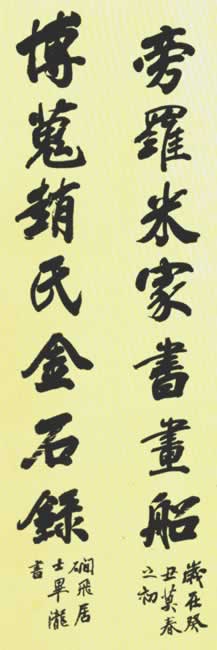 旁羅米家書畫船
歲在癸
丑莫春
之初
博蒐趙氏金石錄
磵飛居
士畢瀧
書